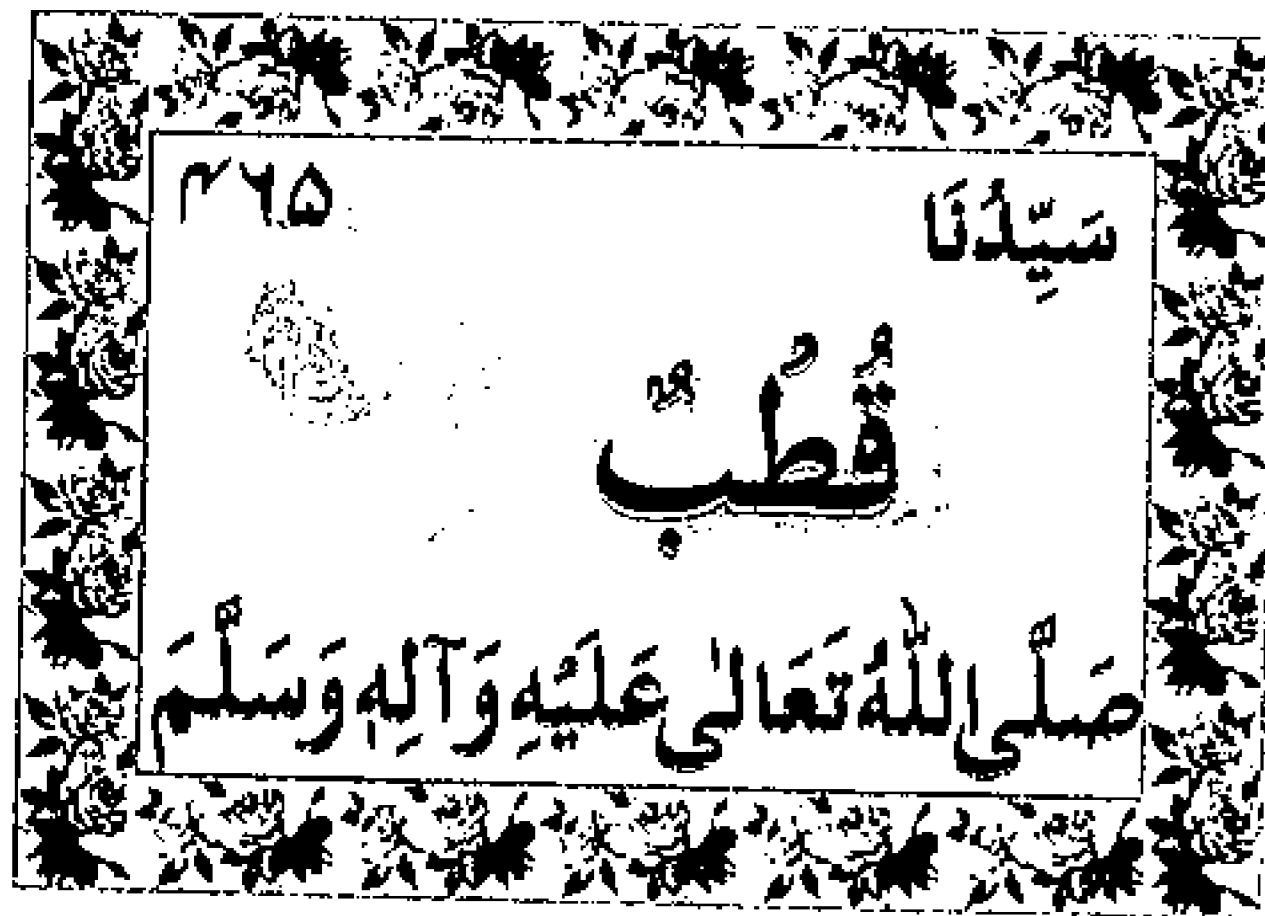 سَيِّدُنَا
قُطُبٌ
صَلَّى اللّٰهُ تَعَالٰى عَلَيْهِ وَآلِهٖ وَسَلَّمَ